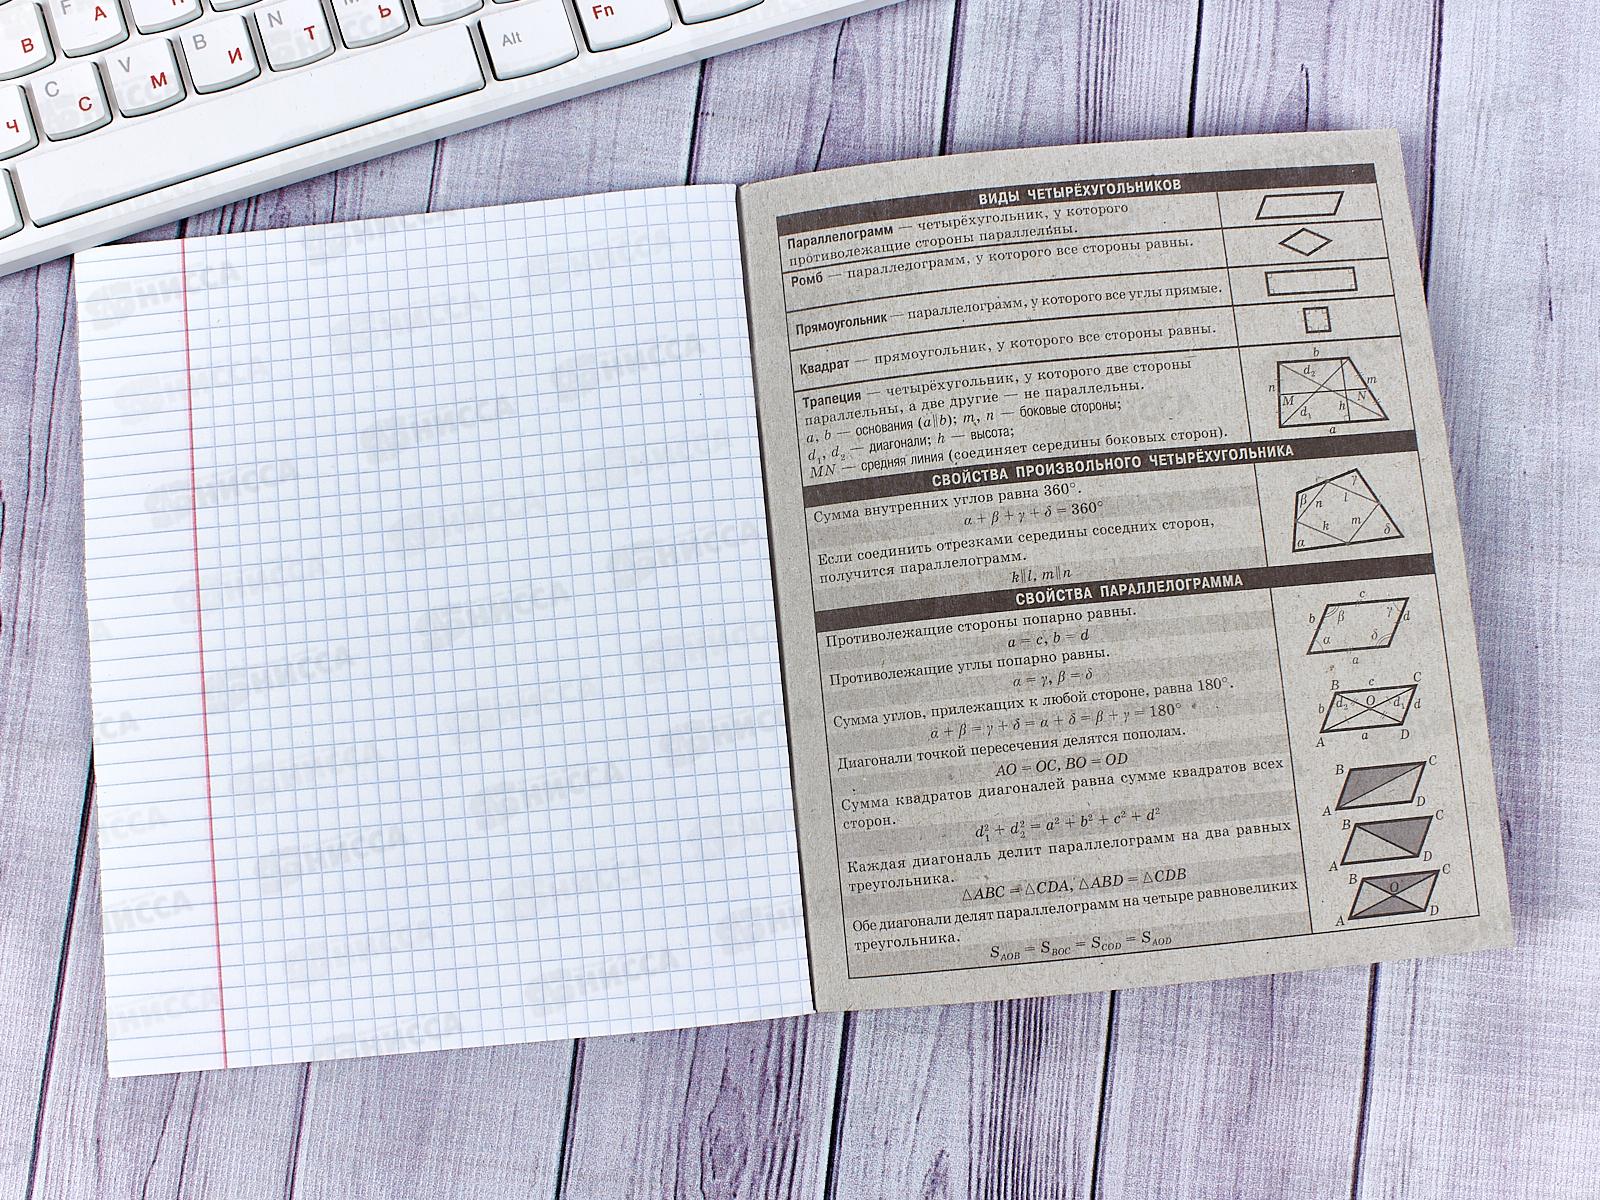 F А П
В
V B N M Ь
C С М И Т
Ч
Alt
Fn
ВИДЫ ЧЕТЫРЁХУГОЛЬНИКОВ
Параллелограмм — четырёхугольник, у которого
противолежащие стороны параллельны.
Ромб — параллелограмм, у которого все стороны равны.
Прямоугольник — параллелограмм, у которого все углы прямые.
Квадрат — прямоугольник, у которого все стороны равны.
Трапеция — четырёхугольник, у которого две стороны
параллельны, а две другие — не параллельны.
a, b — основания (a∥b); m, n — боковые стороны;
d₁, d₂ — диагонали; h — высота;
MN — средняя линия (соединяет середины боковых сторон).
b
n d₂ m
M N
d₁ h
a
СВОЙСТВА ПРОИЗВОЛЬНОГО ЧЕТЫРЁХУГОЛЬНИКА
Сумма внутренних углов равна 360°.
α + β + γ + δ = 360°
Если соединить отрезками середины соседних сторон,
получится параллелограмм.
k∥l, m∥n
β n l γ
k m
α δ
СВОЙСТВА ПАРАЛЛЕЛОГРАММА
Противолежащие стороны попарно равны.
a = c, b = d
Противолежащие углы попарно равны.
α = γ, β = δ
Сумма углов, прилежащих к любой стороне, равна 180°.
α + β = γ + δ = α + δ = β + γ = 180°
Диагонали точкой пересечения делятся пополам.
AO = OC, BO = OD
Сумма квадратов диагоналей равна сумме квадратов всех
сторон.
d₁² + d₂² = a² + b² + c² + d²
Каждая диагональ делит параллелограмм на два равных
треугольника.
△ABC = △CDA, △ABD = △CDB
Обе диагонали делят параллелограмм на четыре равновеликих
треугольника.
S_AOB = S_BOC = S_COD = S_AOD
c
b β γ d
α δ
a
B c C
b d₂ O d₁ d
A a D
B C
A D
B C
A D
B C
O
A D
НИССА